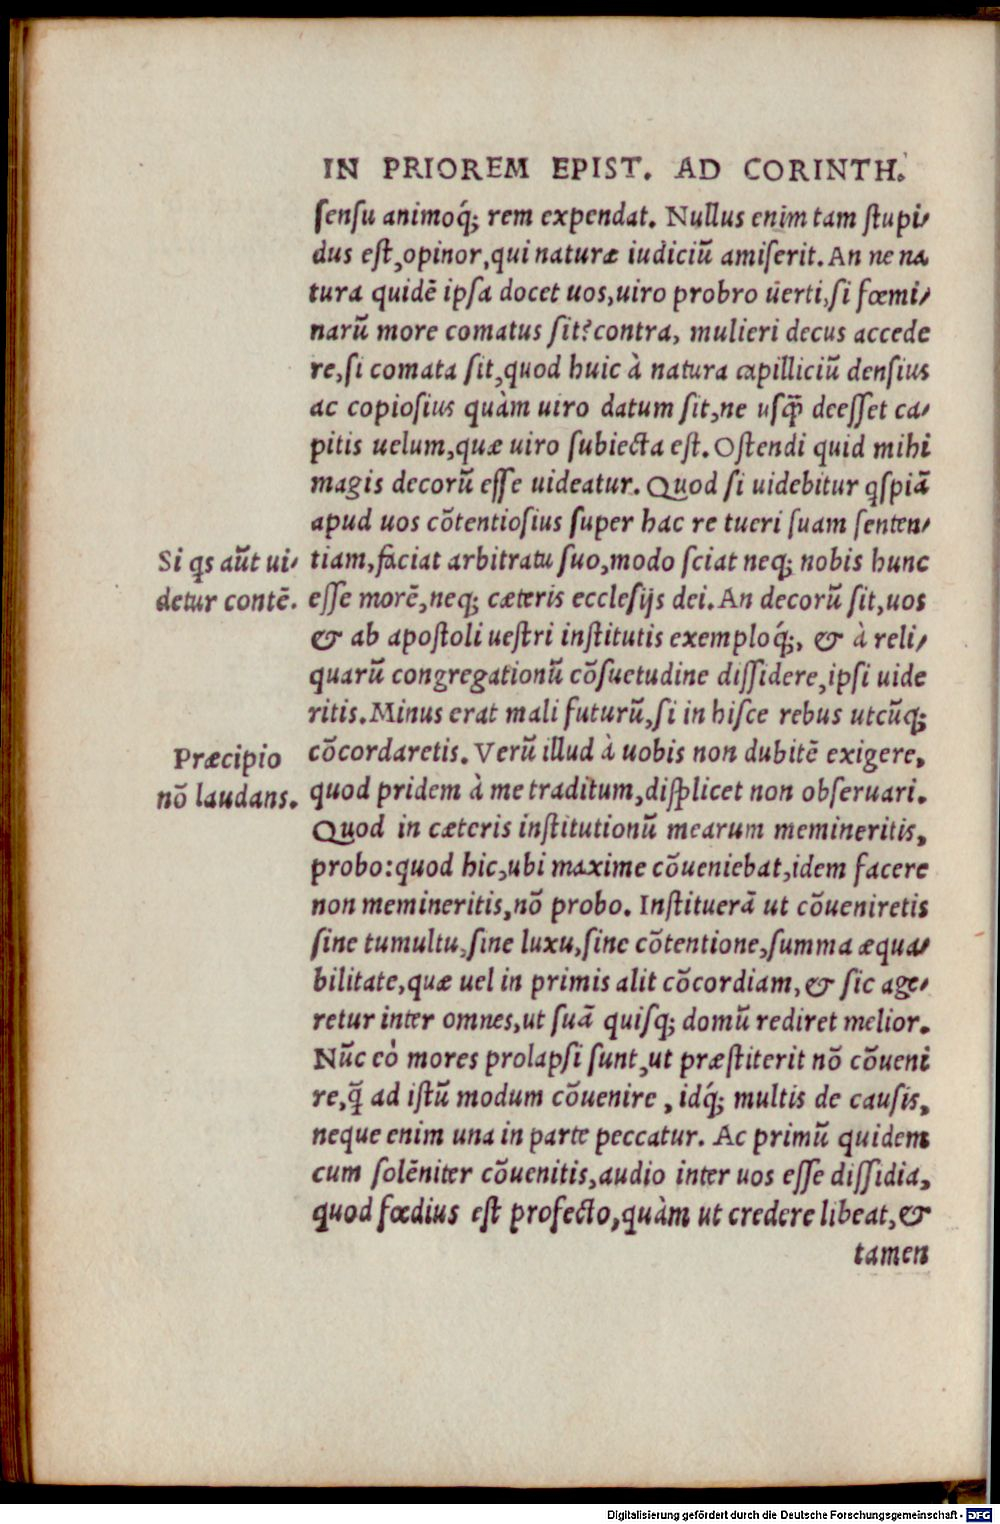 IN PRIOREM EPIST. AD CORINTH.
sensu animoq́; rem expendat. Nullus enim tam stupi-
dus est, opinor, qui naturæ iudiciũ amiserit. An ne na
tura quidẽ ipsa docet uos, uiro probro uerti, si fœmi-
narũ more comatus sit? contra, mulieri decus accede
re, si comata sit, quod huic à natura capilliciũ densius
ac copiosius quàm uiro datum sit, ne usq̃ deesset ca-
pitis uelum, quæ uiro subiecta est. Ostendi quid mihi
magis decorũ esse uideatur. Quod si uidebitur qspiã
apud uos cõtentiosius super hac re tueri suam senten-
Si qs aũt ui-
detur contẽ.
tiam, faciat arbitratu suo, modo sciat neq; nobis hunc
esse morẽ, neq; cæteris ecclesijs dei. An decorũ sit, uos
& ab apostoli uestri institutis exemploq́;, & à reli-
quarũ congregationũ cõsuetudine dissidere, ipsi uide
ritis. Minus erat mali futurũ, si in hisce rebus utcũq;
Præcipio
nõ laudans.
cõcordaretis. Verũ illud à uobis non dubitẽ exigere,
quod pridem à me traditum, displicet non obseruari.
Quod in cæteris institutionũ mearum memineritis,
probo: quod hic, ubi maxime cõueniebat, idem facere
non memineritis, nõ probo. Instituerã ut cõueniretis
sine tumultu, sine luxu, sine cõtentione, summa æqua-
bilitate, quæ uel in primis alit cõcordiam, & sic age-
retur inter omnes, ut suã quisq; domũ rediret melior.
Nũc eò mores prolapsi sunt, ut præstiterit nõ cõueni
re, q̃ ad istũ modum cõuenire, idq́; multis de causis,
neque enim una in parte peccatur. Ac primũ quidem
cum solẽniter cõuenitis, audio inter uos esse dissidia,
quod fœdius est profecto, quàm ut credere libeat, &
tamen
Digitalisierung gefördert durch die Deutsche Forschungsgemeinschaft - DFG